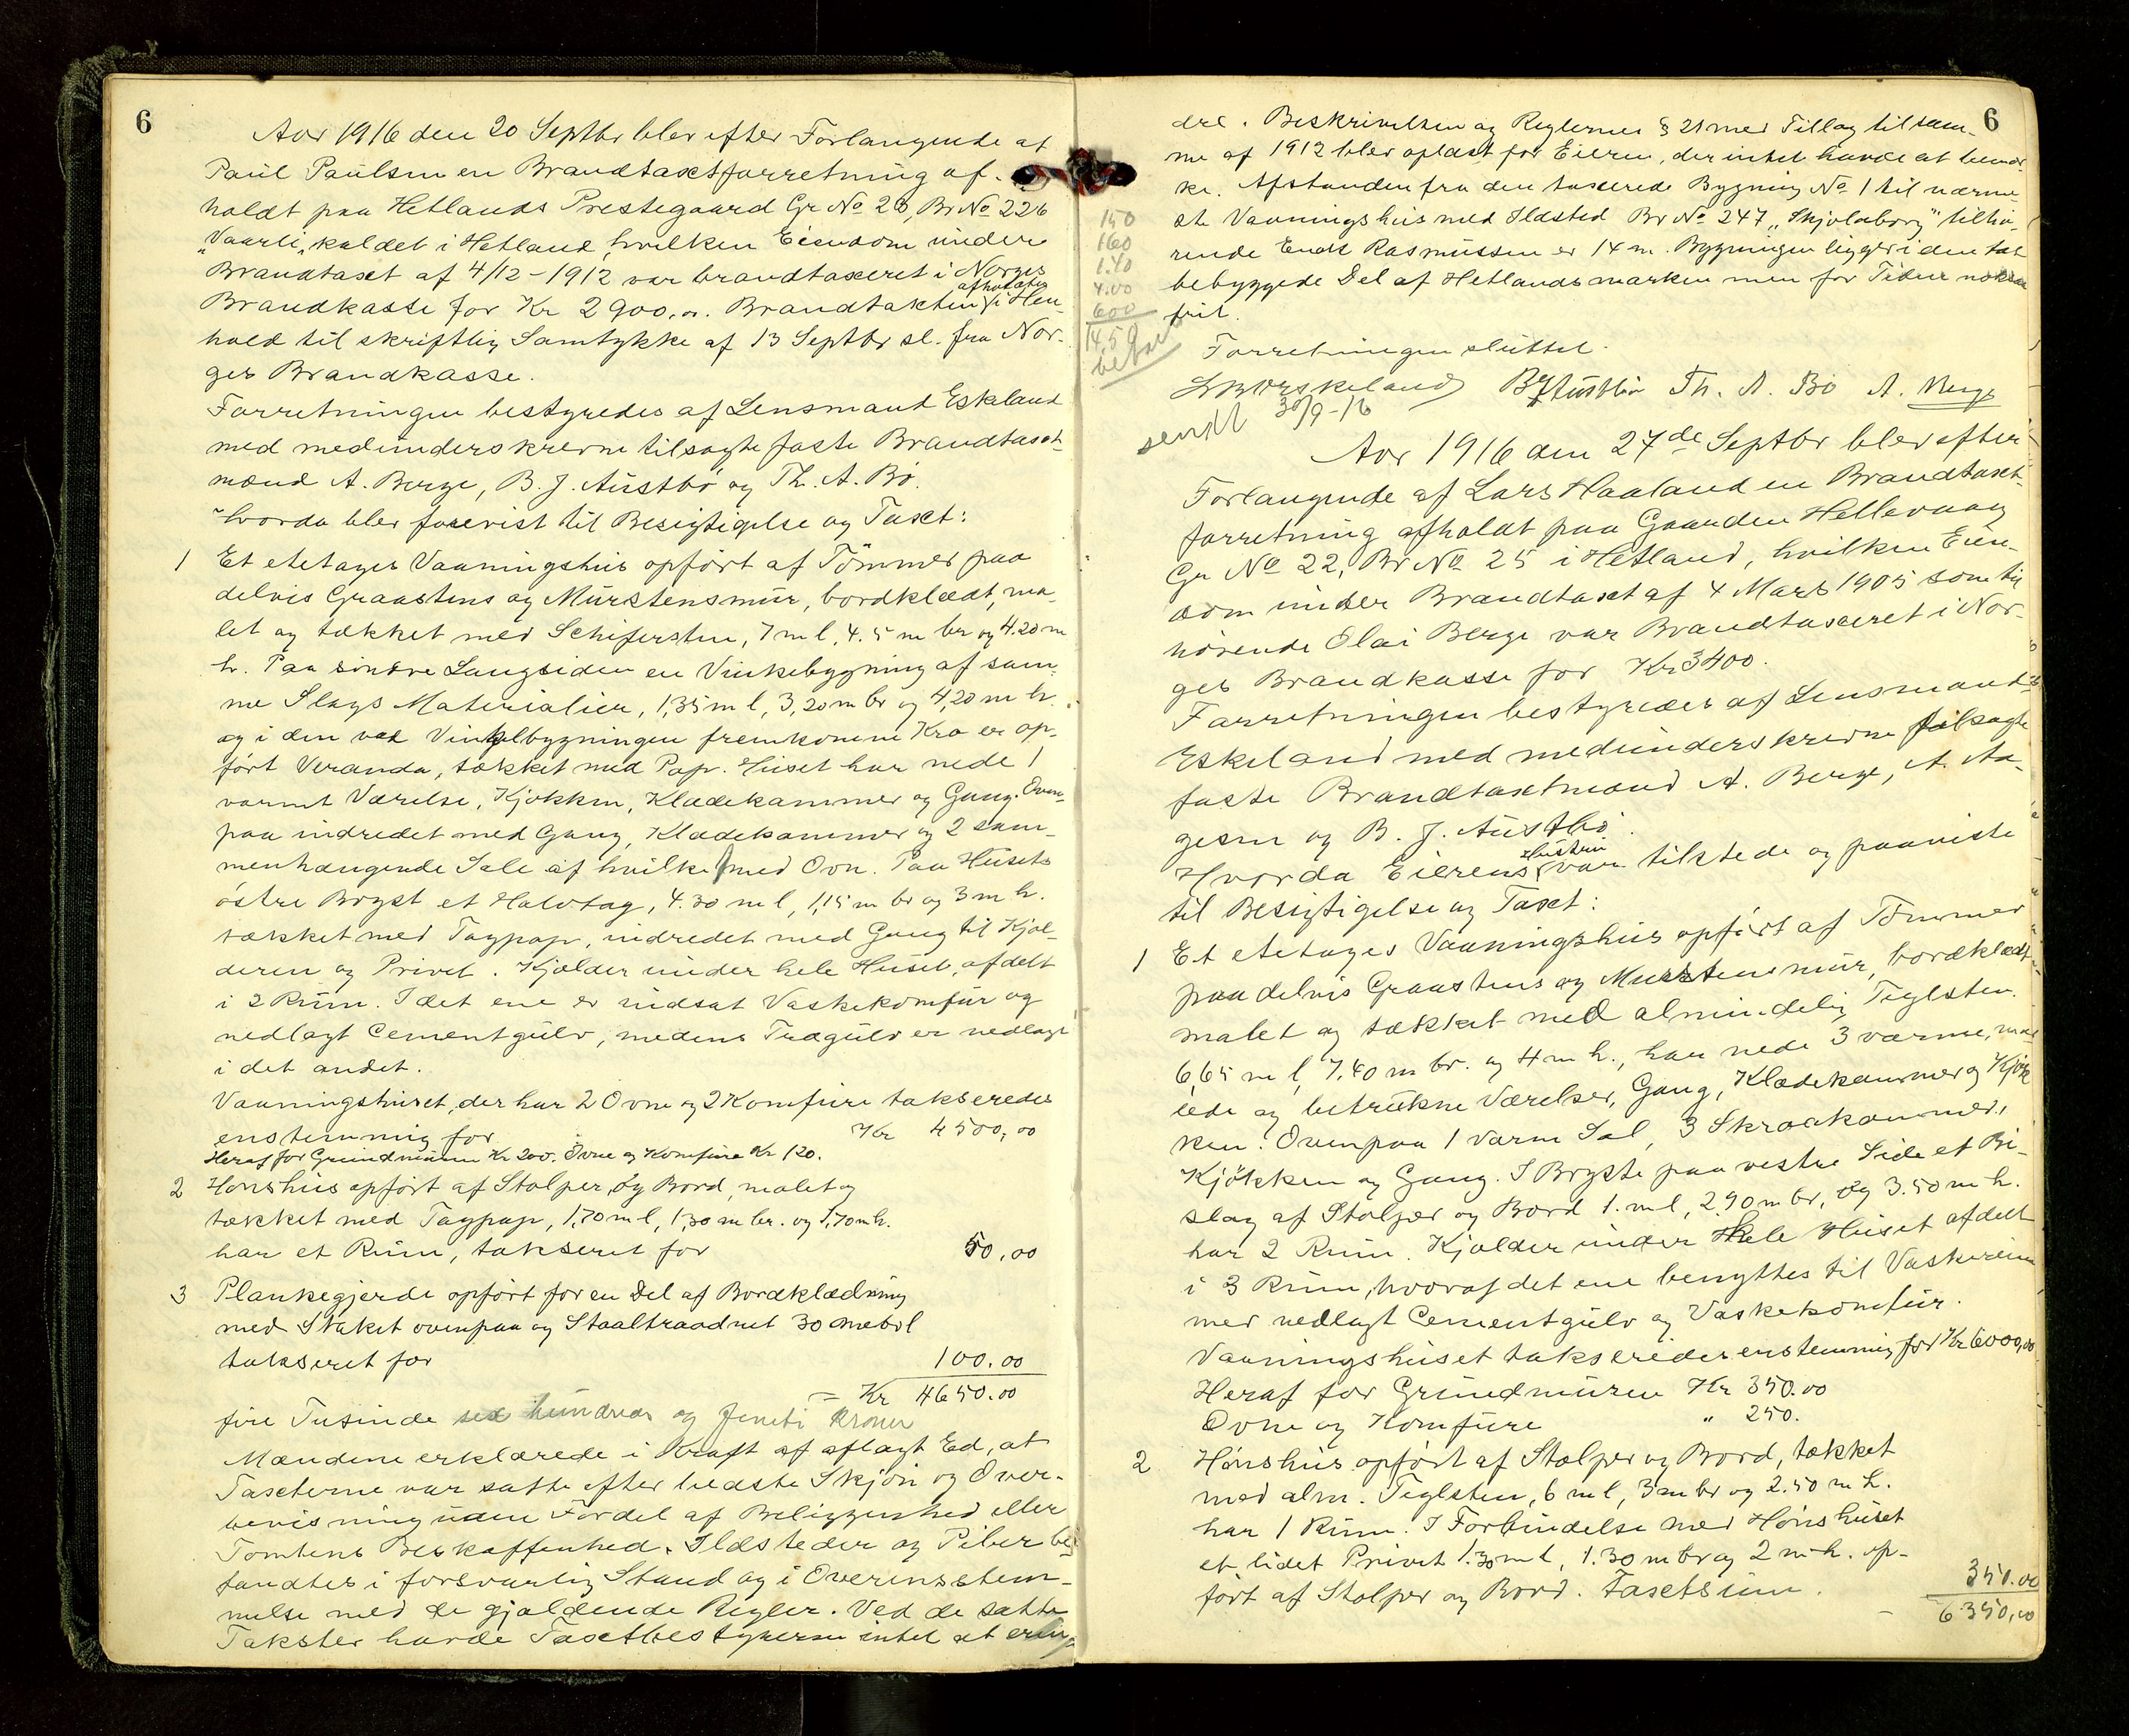 6
Aar 1916 den 20 Septbr blev efter Forlangende af
Paul Paulsen en Brandtaxtforretning af-
holdt paa Hetlands Prestegaard Gr No 28, Br No 226
"Vaarli" kaldet i Hetland, hvilken Eiendom under
Brandtaxt af 4/12-1912 var brandtaxeret i Norges
Brandkasse for Kr 2900.00. Brandtakten afholdtes i Hen-
hold til skriftlig Samtykke af 13 Septbr sl. fra Nor-
ges Brandkasse.
Forretningen bestyredes af Lensmand Eskeland
med medunderskrevne tilsagte faste Brandtaxt-
mænd A. Berge, B. J. Austbö og Th. A. Bö.
Hvorda blev forevist til Besigtigelse og Taxt:
1 Et etetages Vaaningshus opført af Tömmer paa
delvis Graastens og Murstensmur, bordklædt, ma-
let og tækket med Schifersten, 7 m l, 4.5 m br og 4.20 m
h. Paa söndre Langsiden en Vinkebygning af sam-
me Slags Materialier, 1,35 m l, 3,20 m br og 4,20 m h.
og i den ved Vinkelbygningen fremkomne Kro er op-
fört Veranda, tækket med Pap. Huset har nede 1
varmt Værelse, Kjøkken, Klædekammer og Gang. Oven-
paa indredet med Gang, Klædekammer og 2 sam-
menhængende Sale af hvilke 1 med Ovn. Paa Husets
östre Bryst et Halvtag, 4.30 m l, 1,15 m br og 3 m h.
tækket med Tagpap, indredet med Gang til Kjæl-
deren og Privet. Kjælder under hele Huset, afdelt
i 2 Rum. I det ene er indsat Vaskekomfur og
nedlagt Cementgulv, medens Trægulv er nedlagt
i det andet.
Vaaningshuset, der har 2 Ovne og 2 Komfure takseredes
enstemmig for Kr 4500,00
Heraf for Grundmuren Kr 200. Ovne og Komfure Kr 120.
2 Hønshus opført af Stolper og Bord, malet og
tækket med Tagpap, 1,70 m l, 1,30 m br. og 1,70 m h.
har et Rum, takseret for 50,00
3 Plankegjerde opfört for en Del af Bordklædning
med Staket ovenpaa og Staaltraadnet 30 meter l
takseret for 100.00
= Kr 4650.00
fire Tusinde sex hundrede og femti Kroner
Mændene erklærede i Kraft af aflagt Ed, at
Taxterne var satte efter bedste Skjön og Over-
bevisning uden Fordel af Beliggenhed eller
Tomtens Beskaffenhed. Ildsteder og Piber be-
fandtes i forsvarlig Stand og i Overensstem-
melse med de gjældende Regler. Ved de satte
Takster havde Taxtbestyreren intet at erin-
6
dre. Beskrivelsen og Reglernes § 21 med Tillæg til sam-
me af 1912 blev oplæst for Eieren, der intet havde at bemær-
ke. Afstanden fra den taxerede Bygning No 1 til nærme-
ste Vaaningshus med Ildsted Br No 247 "Skjoldborg" tilhö-
rende Endr Rasmussen er 14 m. Bygningen ligger i den tæt
bebyggede Del af Hetlandsmarken men for Tiden noksaa
frit.
150
160
1.40
4.00
600
14.50
betalt
Forretningen sluttet.
L Worskeland B J Austbö Th. A. Bö A. Berge
sendt 30/9-16
Aar 1916 den 27de Septbr blev efter
Forlangende af Lars Haaland en Brandtaxt-
forretning afholdt paa Gaarden Hellevaag
Gr No 22, Br No 25 i Hetland, hvilken Eien-
dom under Brandtaxt af 4 Mars 1905 som til-
hörende Olai Berge var Brandtaxeret i Nor-
ges Brandkasse for Kr 3400.
Forretningen bestyredes af Lensmand
Eskeland med medunderskrevne tilsagte
faste Brandtaxtmænd A. Berge, A. Aa-
gesen og B. J. Austbö.
Hvorda Eierens Hustru var tilstede og paaviste
til Besigtigelse og Taxt:
1 Et etetages Vaaningshus opfört af Tömmer
paa delvis Graastens og Murstensmur, bordklædt,
malet og tækket med almindelig Teglsten.
6,65 m l, 7,40 m br. og 4 m h., har nede 3 varme, ma-
lede og betrukne Værelser, Gang, Klædekammer og Kjök-
ken. Ovenpaa 1 varm Sal, 3 Skraakammer,
Kjökken og Gang. I Bryste paa vestre Side et Bi-
slag af Stolper og Bord 1. m l, 2,90 m br, og 3.50 m h.
har 2 Rum. Kjælder under Hele Huset afdelt
i 3 Rum, hvoraf det ene benyttes til Vaskerum
med nedlagt Cementgulv og Vaskekomfur.
Vaaningshuset takseredes enstemmig for Kr 6000,00
Heraf for Grundmuren Kr 350.00
Ovne og Komfure " 250.
2 Hönshus opfört af Stolper og Bord, tækket
med alm. Teglsten, 6 m l, 3 m br og 2.50 m h.
har 1 Rum. I Forbindelse med Hönshuset
et lidet Privet 1.30 m l, 1.30 m br og 2 m h. op-
fört af Stolper og Bord. Taxtsum. 350.00
6350,00